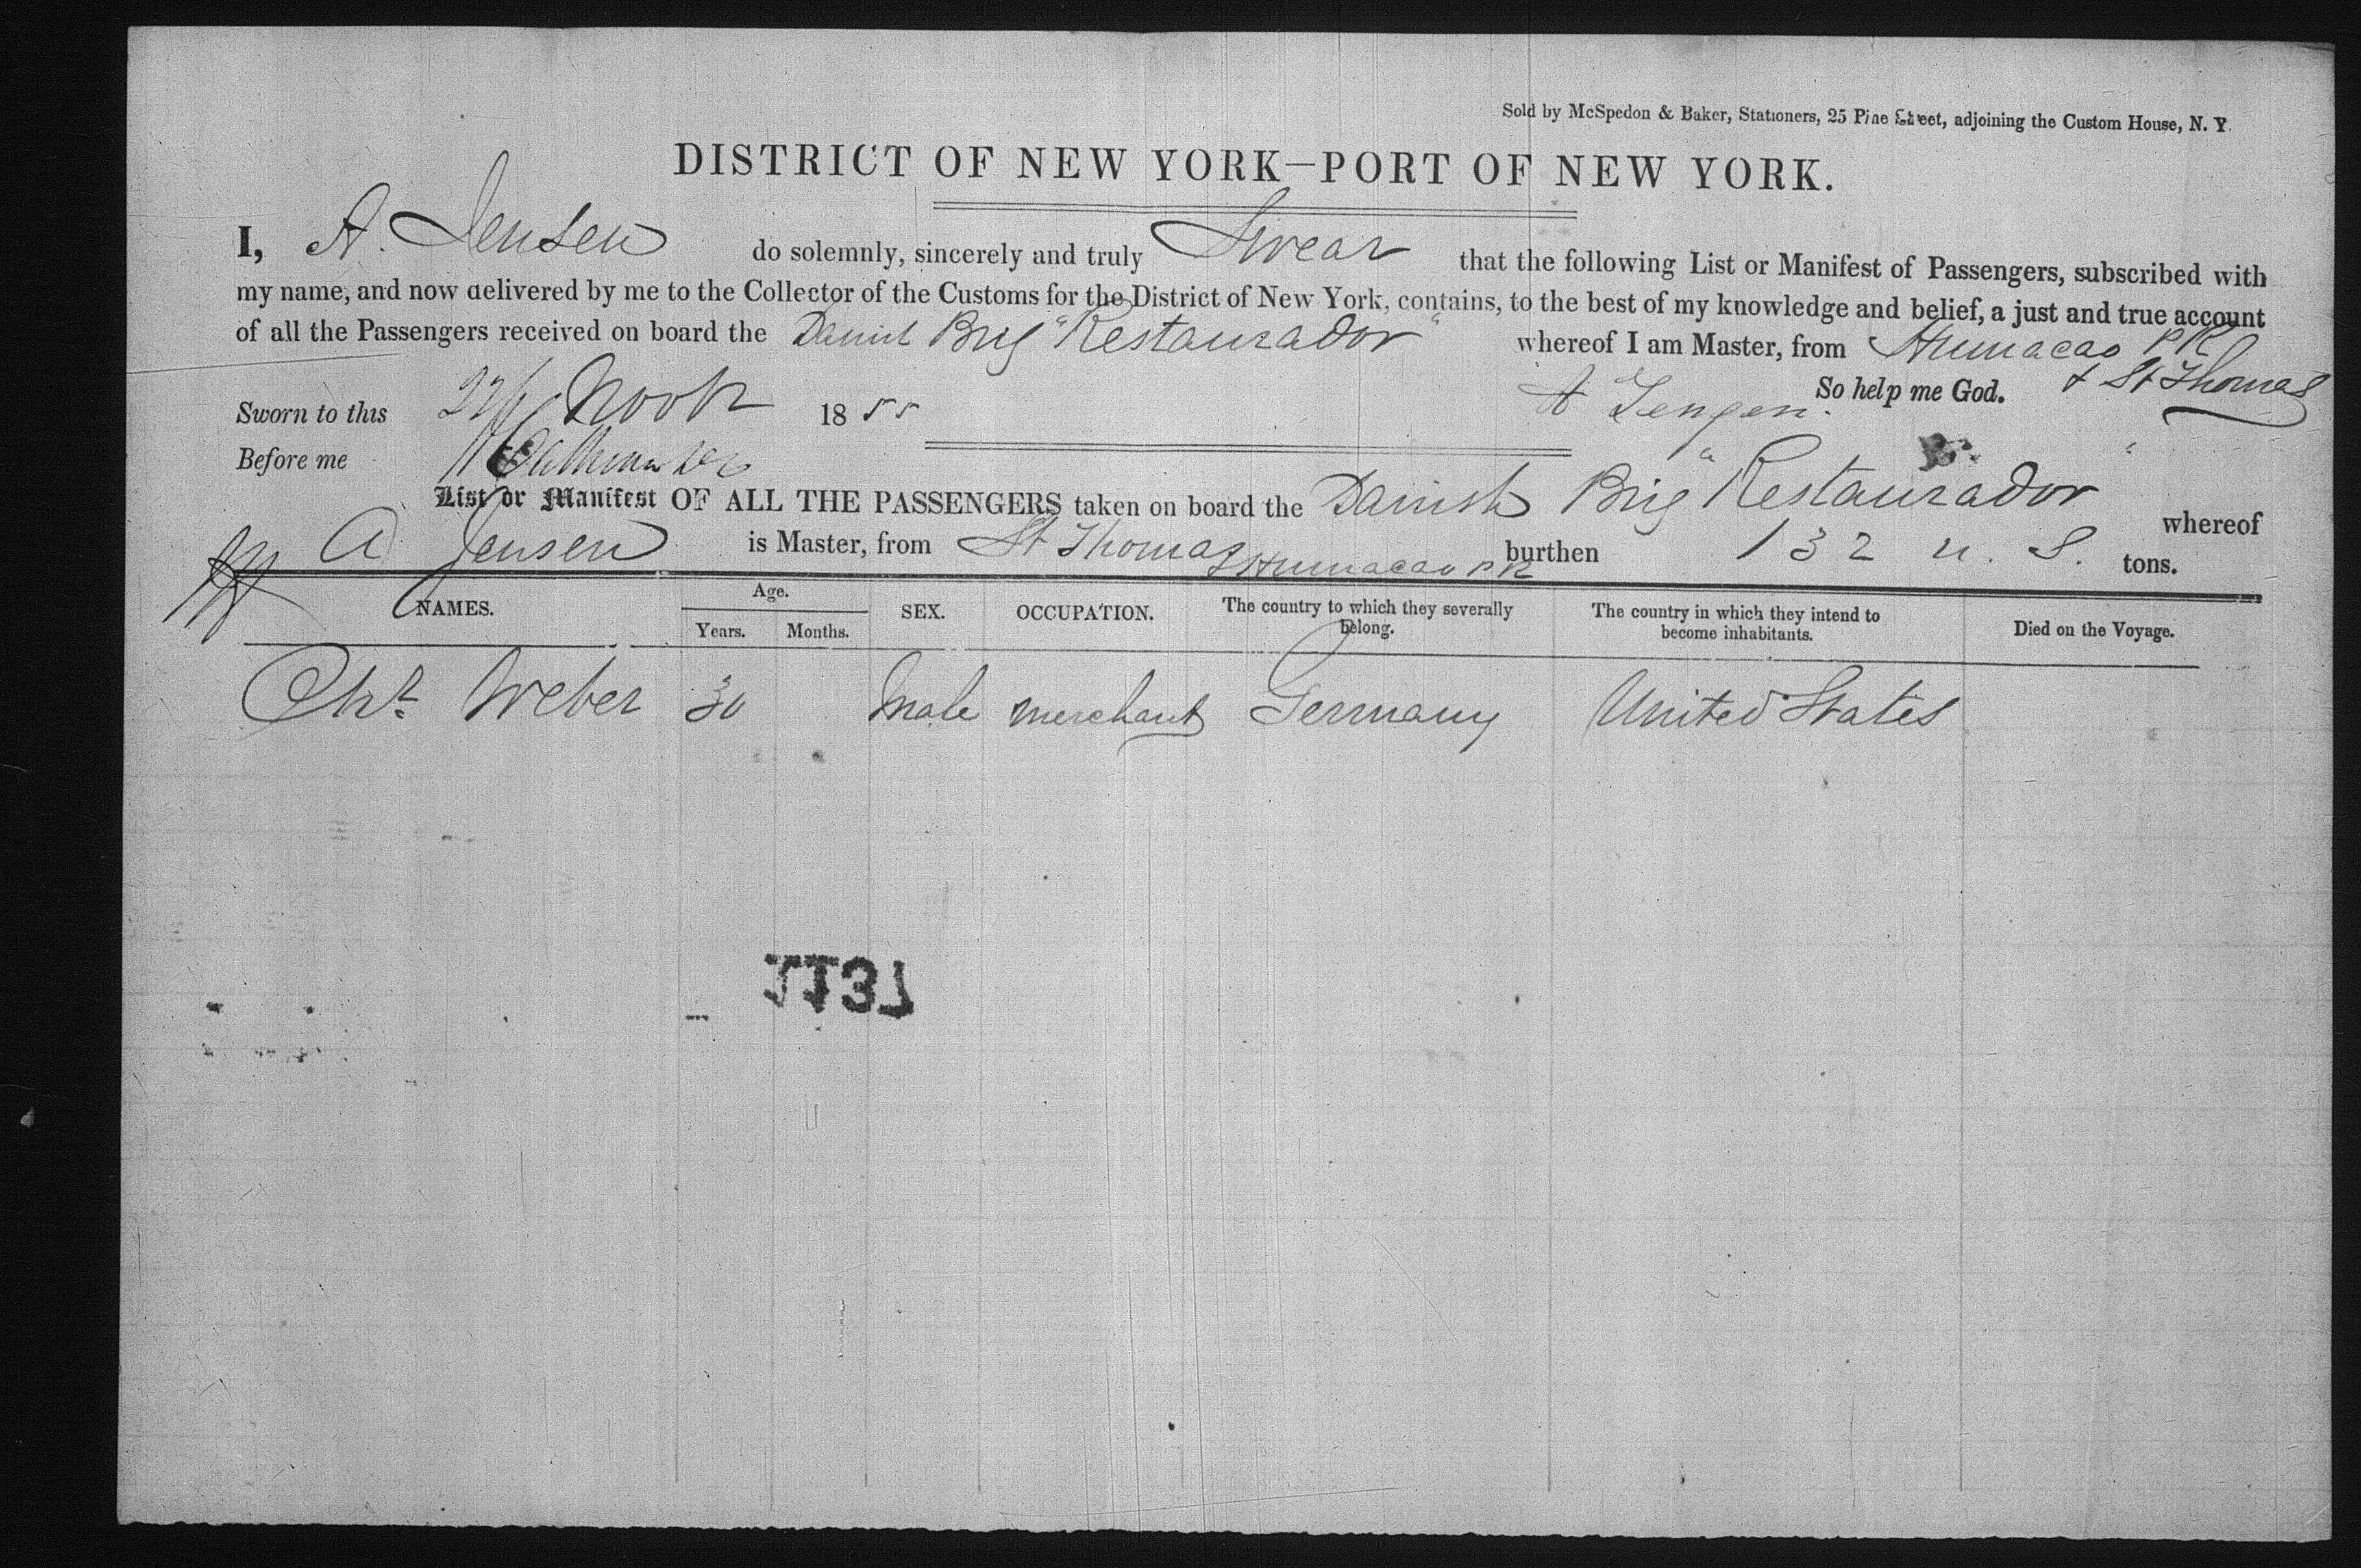 Sold by McSpedon & Baker, Stationers, 25 Pine Street, adjoining the Custom House, N. Y.
DISTRICT OF NEW YORK—PORT OF NEW YORK.
I, A. Jensen do solemnly, sincerely and truly Swear that the following List or Manifest of Passengers, subscribed with
my name, and now delivered by me to the Collector of the Customs for the District of New York, contains, to the best of my knowledge and belief, a just and true account
of all the Passengers received on board the Danish Brig "Restaurador" whereof I am Master, from Humacao P R
& St Thomas
So help me God.
Sworn to this 22 1855
A Jensen.
Before me
List or Manifest OF ALL THE PASSENGERS taken on board the Danish Brig "Restaurador" whereof
A Jensen is Master, from St Thomas & Humacao P R burthen 132 n. S. tons.
NAMES. Age. Years. Months. SEX. OCCUPATION. The country to which they severally belong. The country in which they intend to become inhabitants. Died on the Voyage.
Chr. Weber 30 Male merchant Germany United States
1137